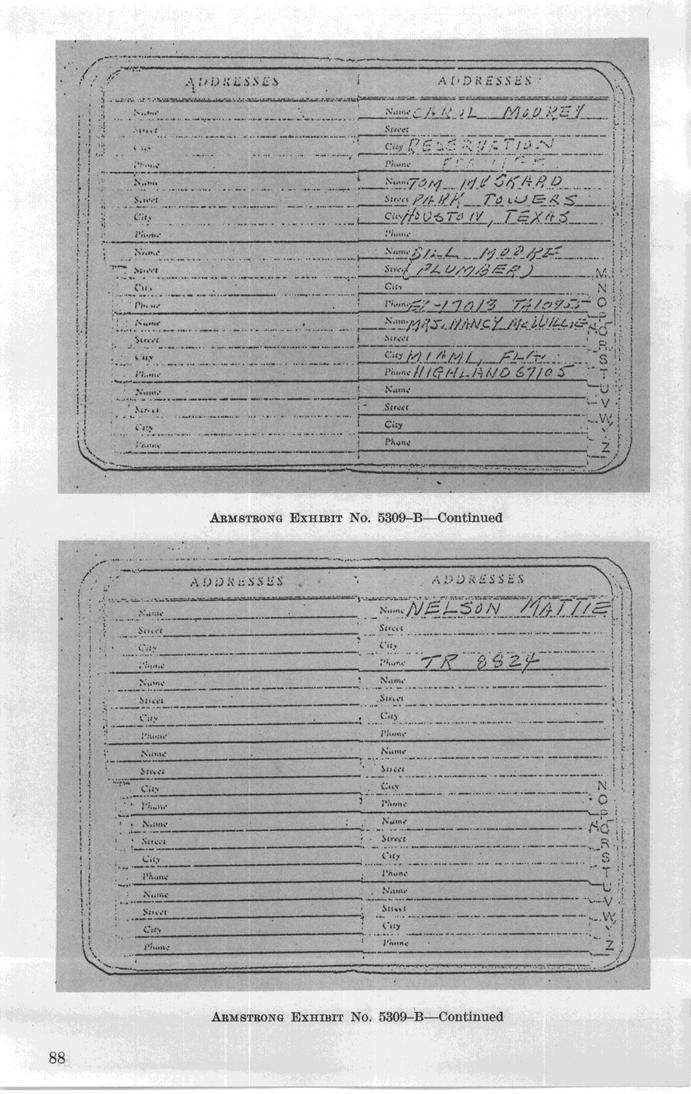 ADDRESSES ADDRESSES
Name Name CAROL
Street Street
City City RESERVATION
Phone Phone
Name Name TOM
Street Street PARK TOWERS
City City HOUSTON, TEXAS
Phone Phone
Name Name BILL MOORE
Street Street (PLUMBER)
City City
Phone Phone
Name Name MRS. NANCY McWILLIE
Street Street
City City MIAMI, FLA.
Phone Phone HIGHLAND 67105
Name Name
Street Street
City City
Phone Phone
M
N
O
P
Q
R
S
T
U
V
W
Z
ARMSTRONG EXHIBIT No. 5309–B—Continued
ADDRESSES ADDRESSES
Name Name NELSON MATTIE
Street Street
City City
Phone Phone TR 8824
Name Name
Street Street
City City
Phone Phone
Name Name
Street Street
City City
Phone Phone
Name Name
Street Street
City City
Phone Phone
Name Name
Street Street
City City
Phone Phone
N
O
P
Q
R
S
T
U
V
W
Z
ARMSTRONG EXHIBIT No. 5309–B—Continued
88